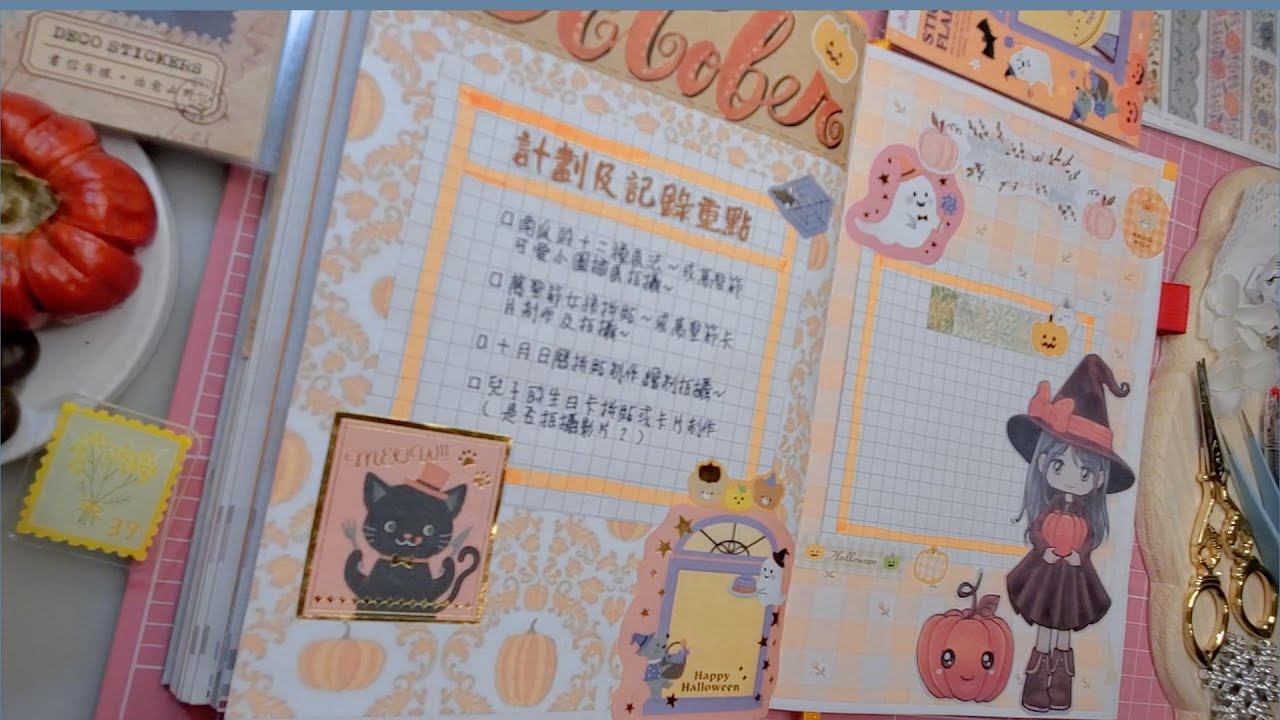 DECO STICKERS
October
計劃及記錄重點
□ 南瓜的十二種畫法~或萬聖節
可愛小圖插畫拍攝~
□ 萬聖節女孩拼貼~或萬聖節卡
片制作及拍攝~
□ 十月日曆拼貼制作 繪制拍攝~
□ 兒子的生日卡拼貼或卡片制作
(是否拍攝影片?)
MEOW!!
39
Happy
Halloween
Halloween